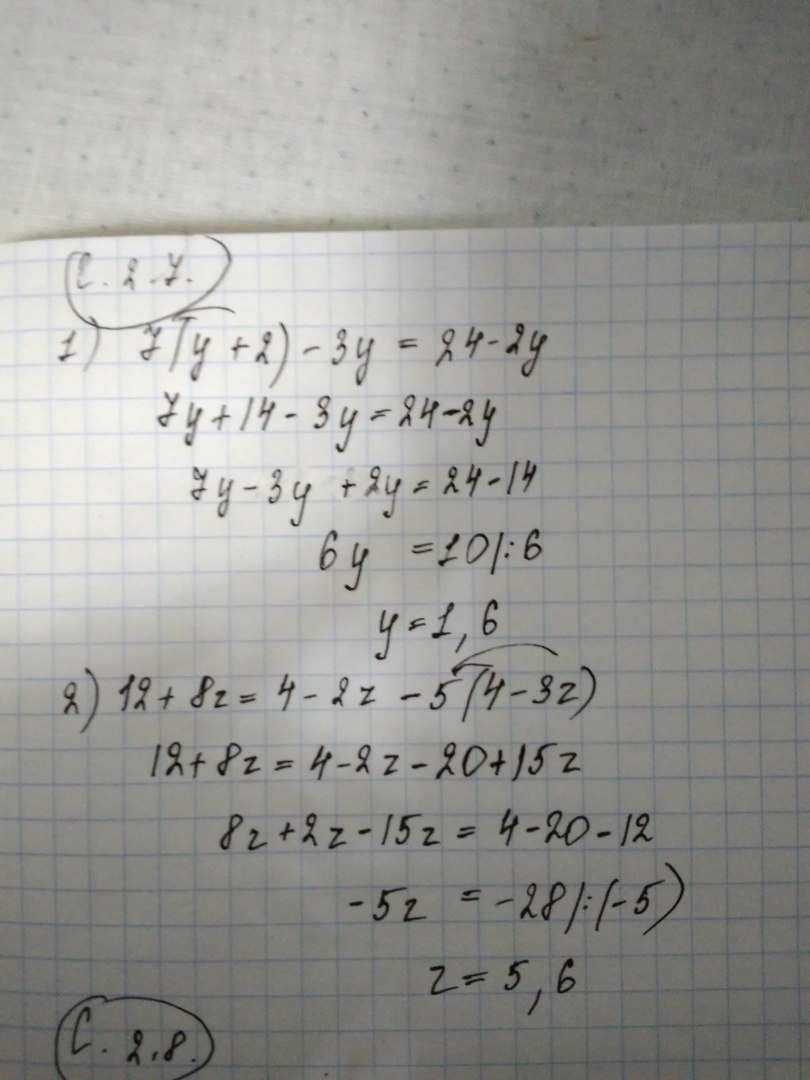 С. 2.7.
1) 7(y+2)-3y = 24-2y
7y+14-3y=24-2y
7y-3y+2y=24-14
6y =10/:6
y=1,6
2) 12+8z= 4-2z-5(4-3z)
12+8z=4-2z-20+15z
8z+2z-15z = 4-20-12
-5z = -28/:(-5)
z=5,6
С. 2.8.